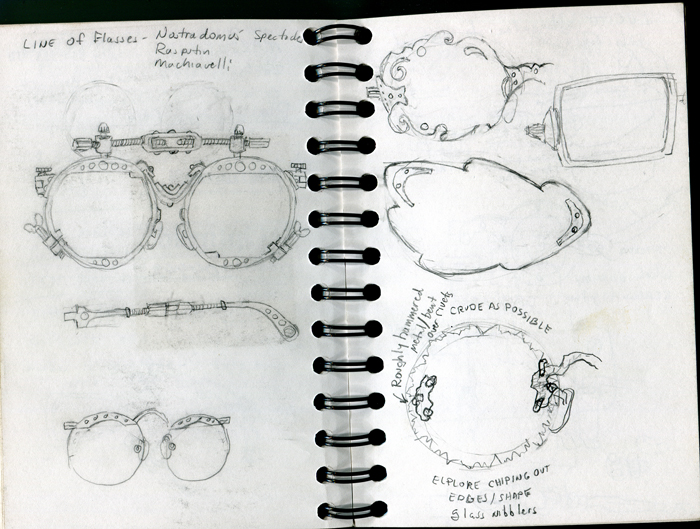 LINE OF Glasses - Nostradomus Spectacle
Rasputin
Machiavelli
CRUDE AS POSSIBLE
Roughly hammered
metal/bent
over rivets
EXPLORE CHIPING OUT
EDGES/SHAPE
glass nibblers